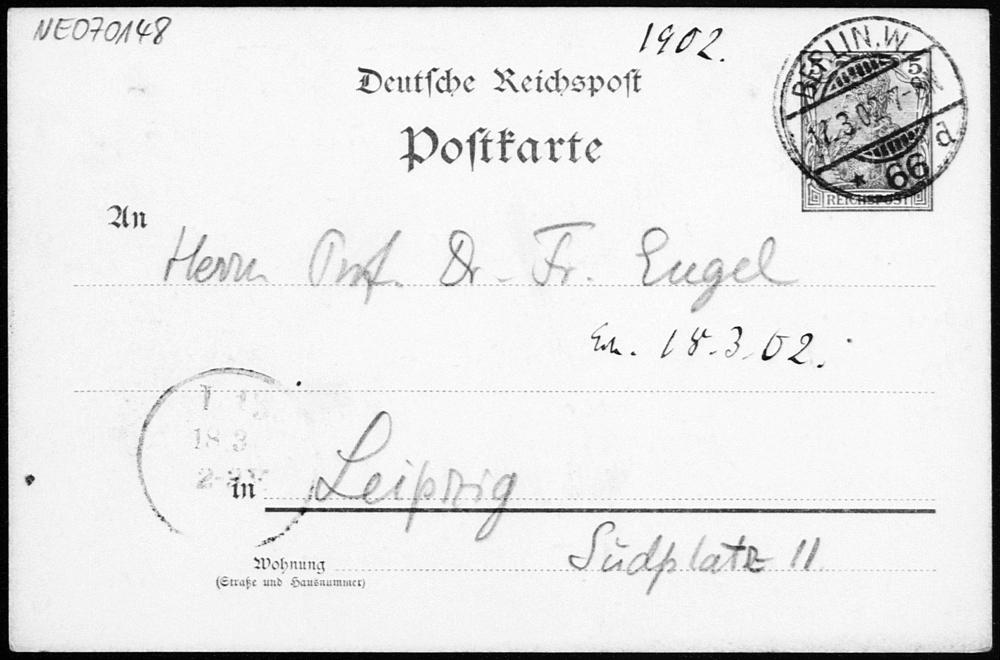 NE070148
1902.
Deutsche Reichspost
Postkarte
BERLIN.W.
5 5
17.3.02 7-8N
* 66 d
REICHSPOST
An
Herrn Prof. Dr. Fr. Engel
Erh. 18.3.02.
18 3
in Leipzig
Südplatz 11
Wohnung
(Straße und Hausnummer)